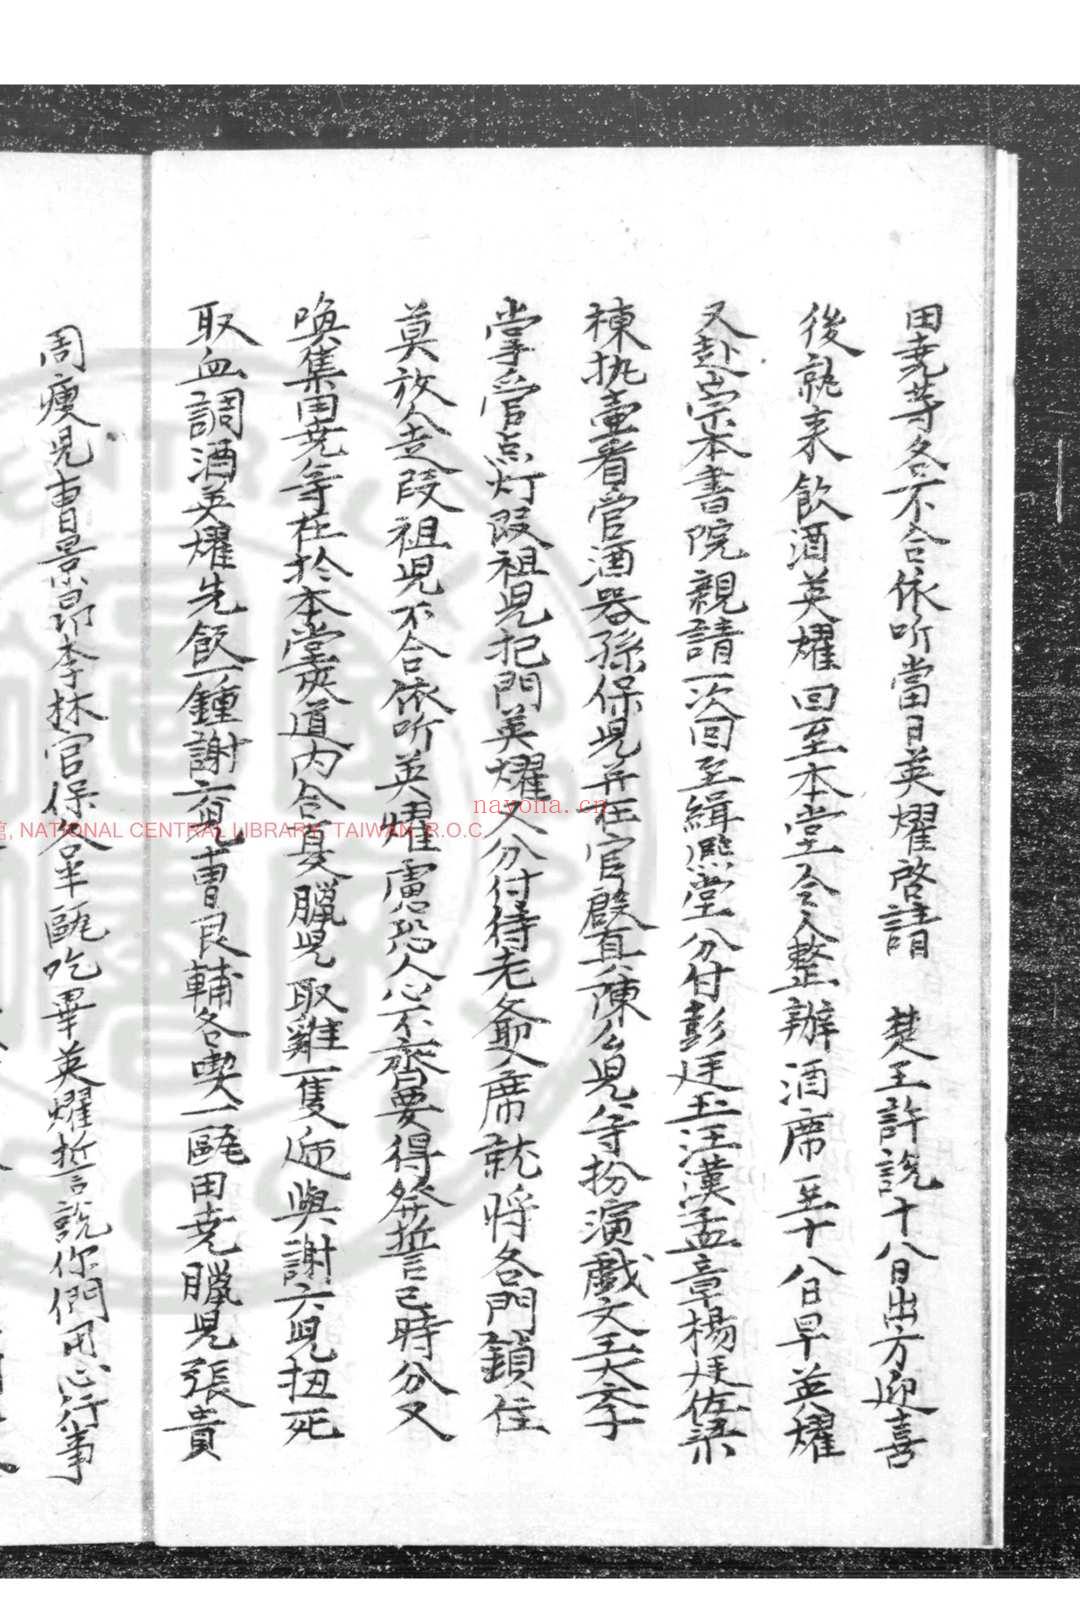 田堯等各不合依听當日英燿啓請　楚王許說十八日出方迎喜
後就来飲酒英燿回至本堂令人整辦酒席至十八日早英燿
又赴宗本書院親請一次回至緝熙堂分付彭廷玉汪漢孟章楊廷佐梁
棟执壷看管酒器孫保児并在官殷真陳么児等扮演戲文王大李
掌管点灯段祖児把門英燿又分付待老爺入席就将各門鎖住
莫放人走段祖児不合依听英燿慮恐人心不齊要得發誓言已時分又
喚集田堯等在扵本堂夾道内令夏臘児取雞一隻逓與謝六児扭死
取血調酒英燿先飲一鍾謝六児曹良輔各喫一甌田堯臘児張貴
周瘦児曹景昂李林官保各半甌吃畢英燿誓言說你們用心行事
館, NATIONAL CENTRAL LIBRARY, TAIWAN, R.O.C.
nayona.cn